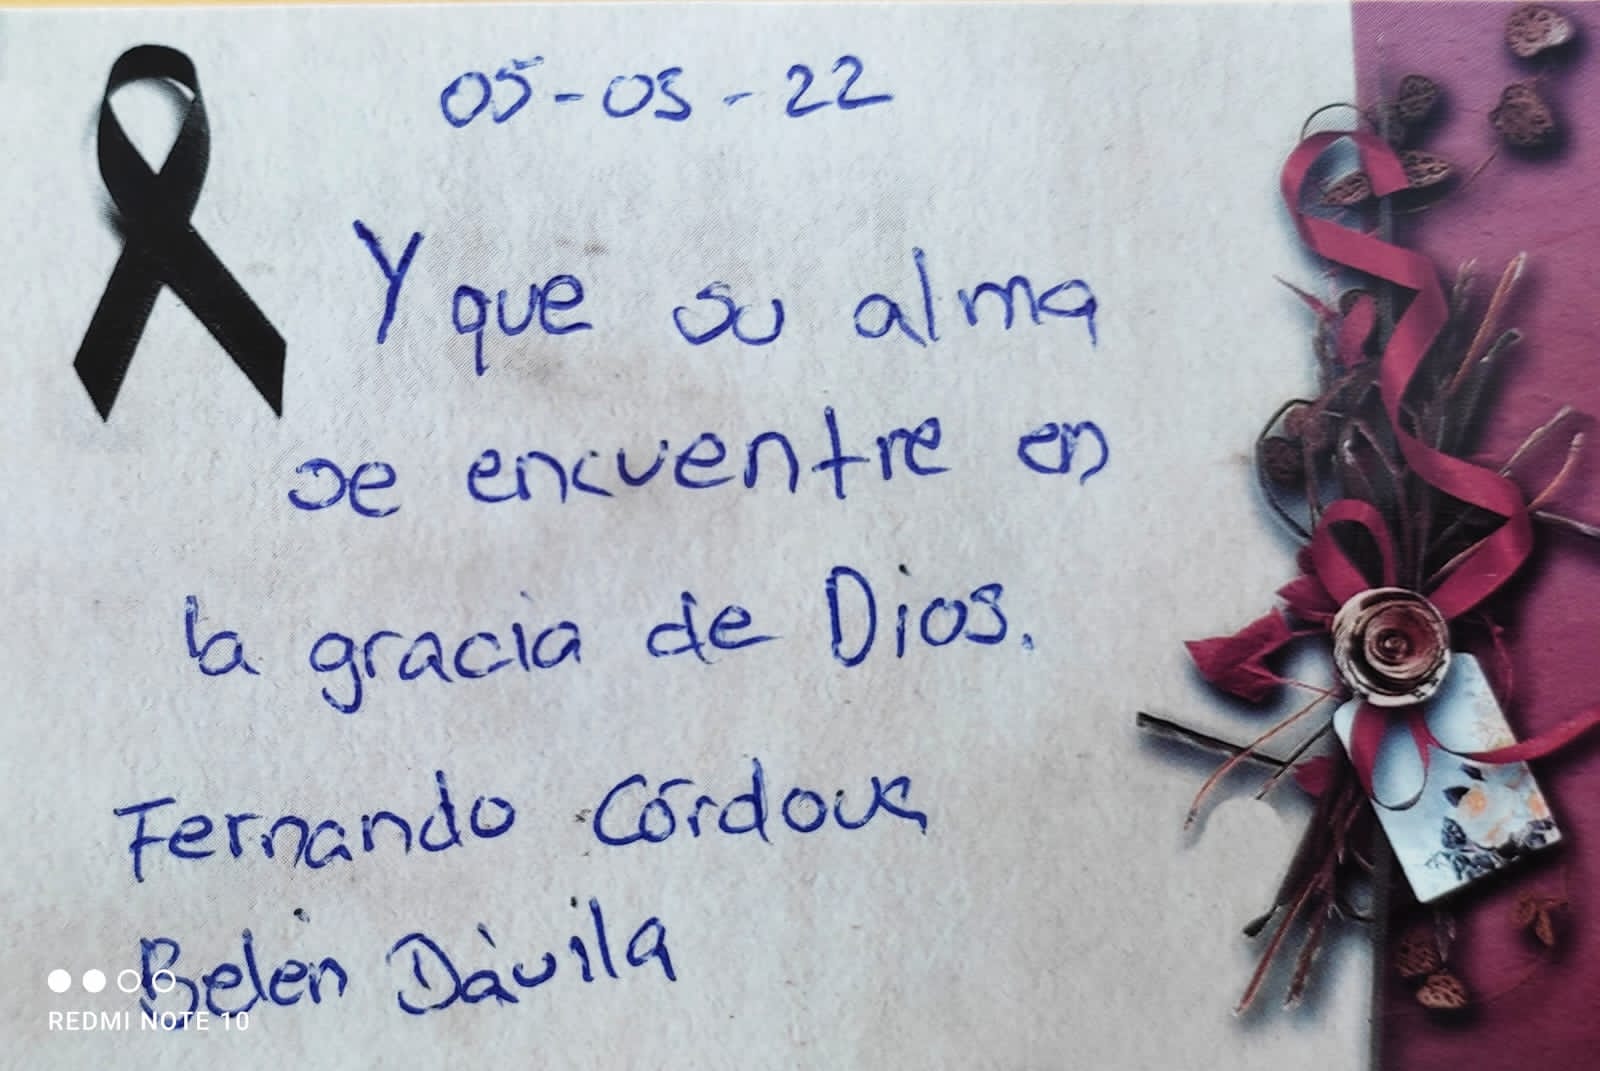 05-05-22
Y que su alma
se encuentre en
la gracia de Dios.
Fernando Córdova
Belén Dávila
REDMI NOTE 10